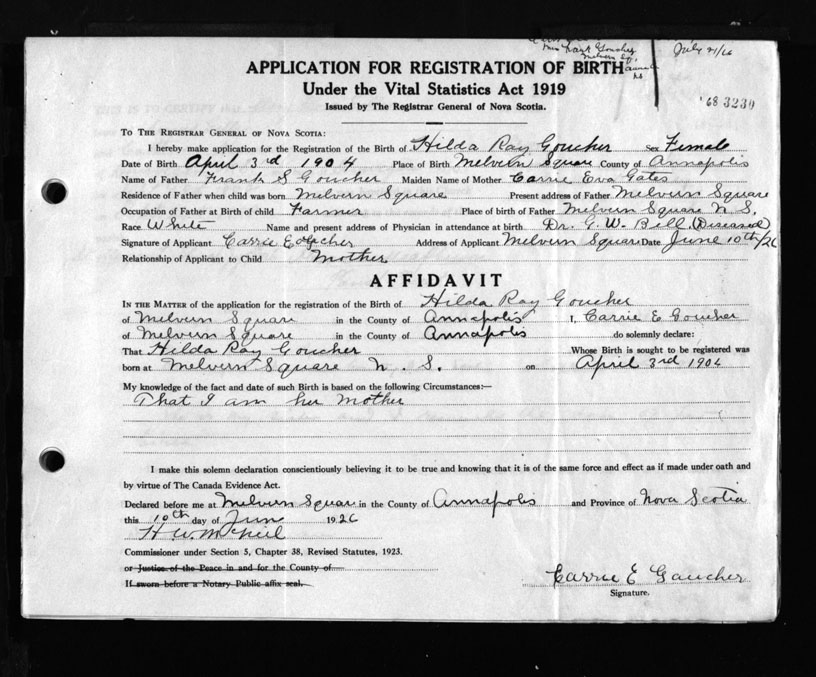 Mrs Frank Goucher
Melvern Sq.
Annapolis
NS
July 21/26
APPLICATION FOR REGISTRATION OF BIRTH
Under the Vital Statistics Act 1919
Issued by The Registrar General of Nova Scotia.
'68 3230
TO THE REGISTRAR GENERAL OF NOVA SCOTIA:
I hereby make application for the Registration of the Birth of Hilda Ray Goucher Sex Female
Date of Birth April 3rd 1904 Place of Birth Melvern Square County of Annapolis
Name of Father Frank S Goucher Maiden Name of Mother Carrie Eva Gates
Residence of Father when child was born Melvern Square Present address of Father Melvern Square
Occupation of Father at Birth of child Farmer Place of birth of Father Melvern Square N S.
Race White Name and present address of Physician in attendance at birth Dr. G. W. Bill (Diseased)
Signature of Applicant Carrie E Goucher Address of Applicant Melvern Square Date June 10th/26
Relationship of Applicant to Child Mother
AFFIDAVIT
IN THE MATTER of the application for the registration of the Birth of Hilda Ray Goucher
of Melvern Square in the County of Annapolis I, Carrie E Goucher
of Melvern Square in the County of Annapolis do solemnly declare:
That Hilda Ray Goucher Whose Birth is sought to be registered was
born at Melvern Square N. S. on April 3rd 1904
My knowledge of the fact and date of such Birth is based on the following Circumstances:—
That I am her Mother
I make this solemn declaration conscientiously believing it to be true and knowing that it is of the same force and effect as if made under oath and
by virtue of The Canada Evidence Act.
Declared before me at Melvern Square in the County of Annapolis and Province of Nova Scotia
this 10th day of June 1926
H W. McNeil
Commissioner under Section 5, Chapter 38, Revised Statutes, 1923.
or Justice of the Peace in and for the County of
If sworn before a Notary Public affix seal.
Carrie E Goucher
Signature.